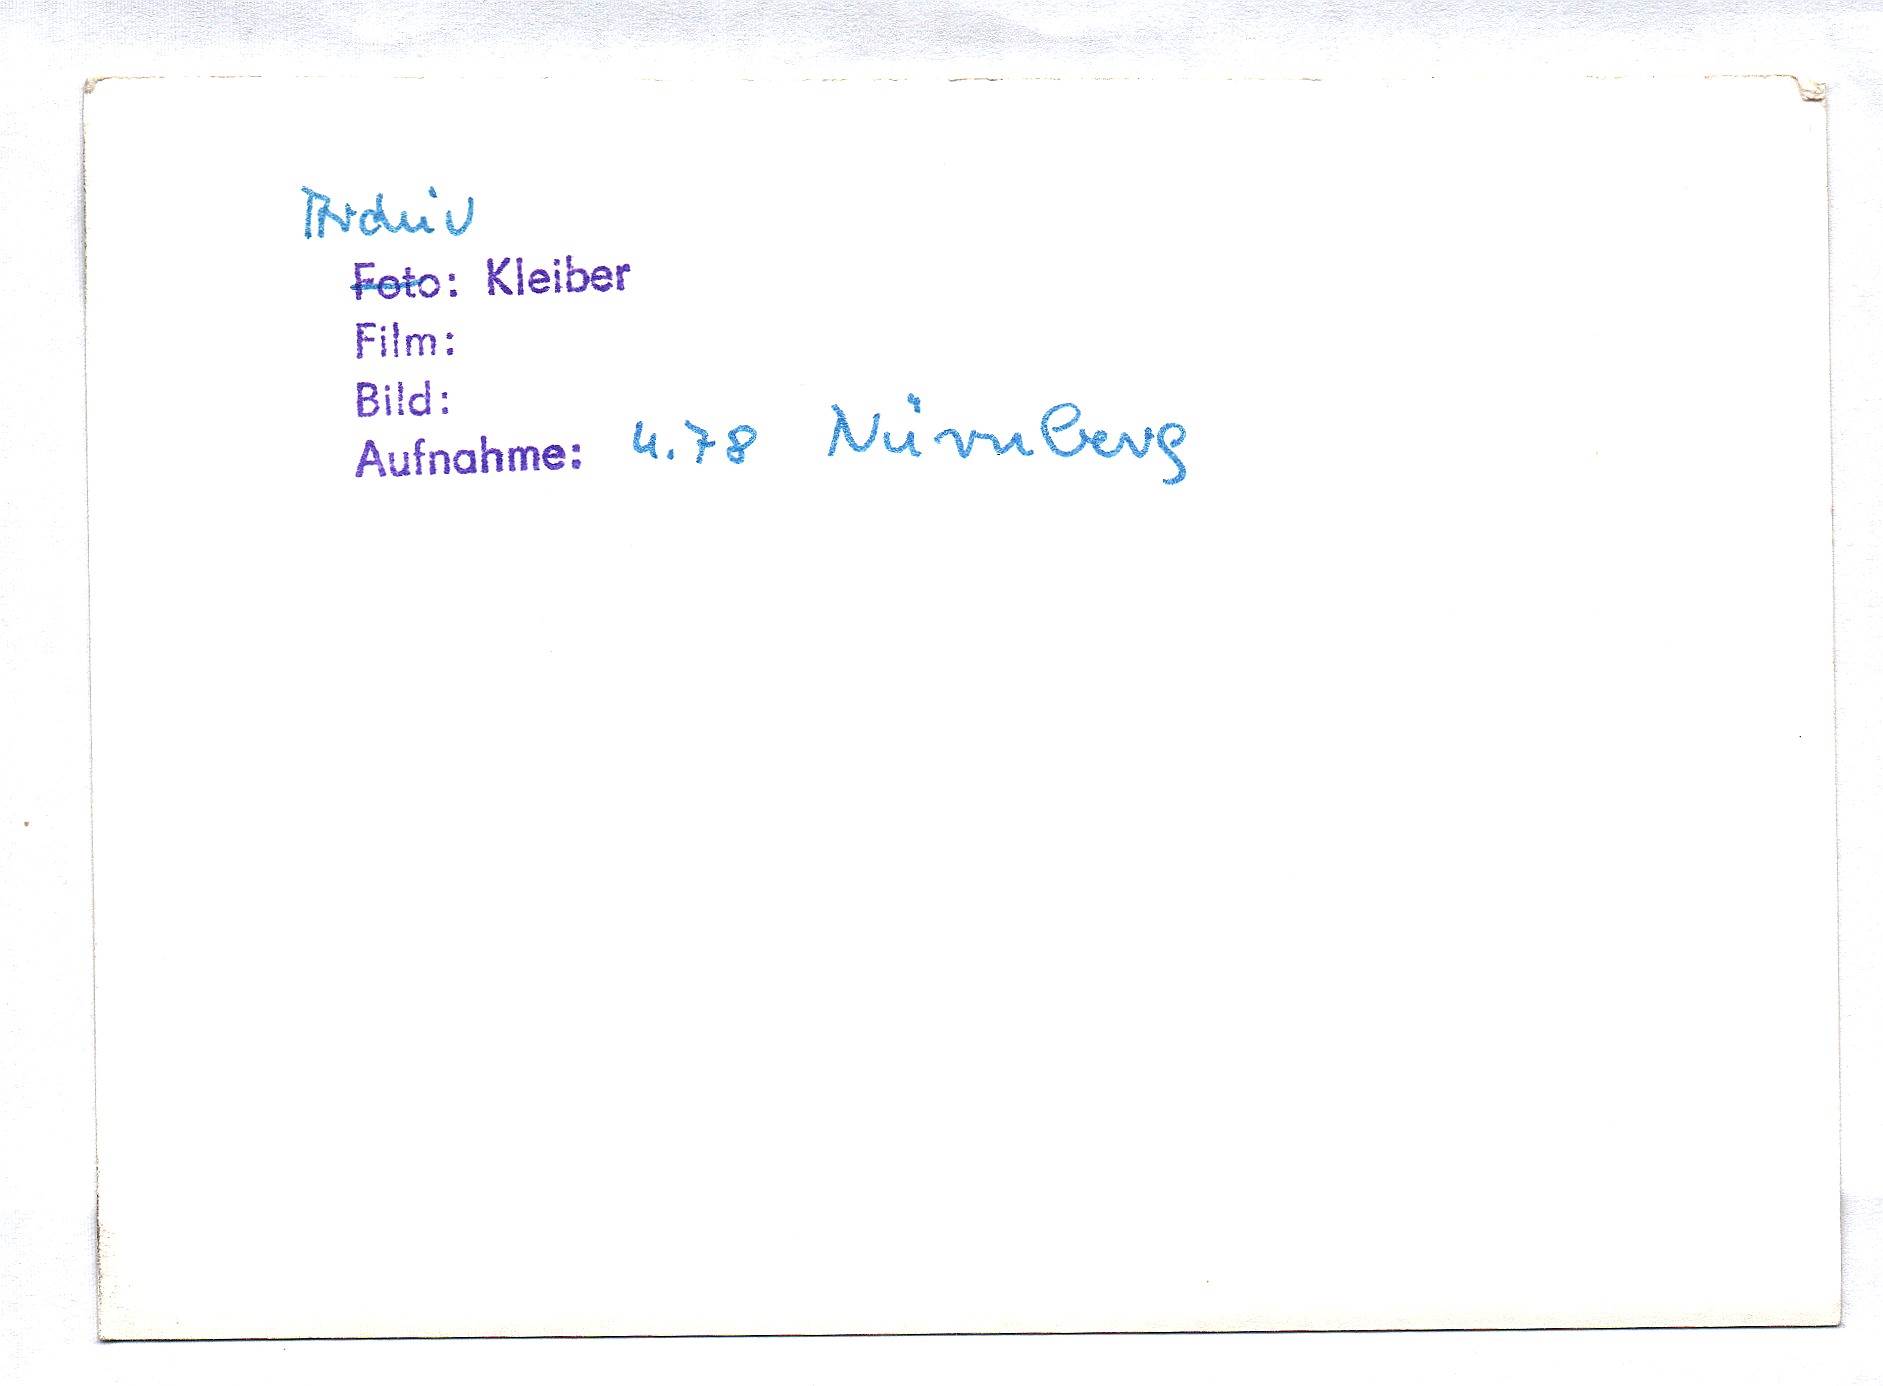 Archiv
Foto: Kleiber
Film:
Bild:
Aufnahme: 4.78 Nürnberg